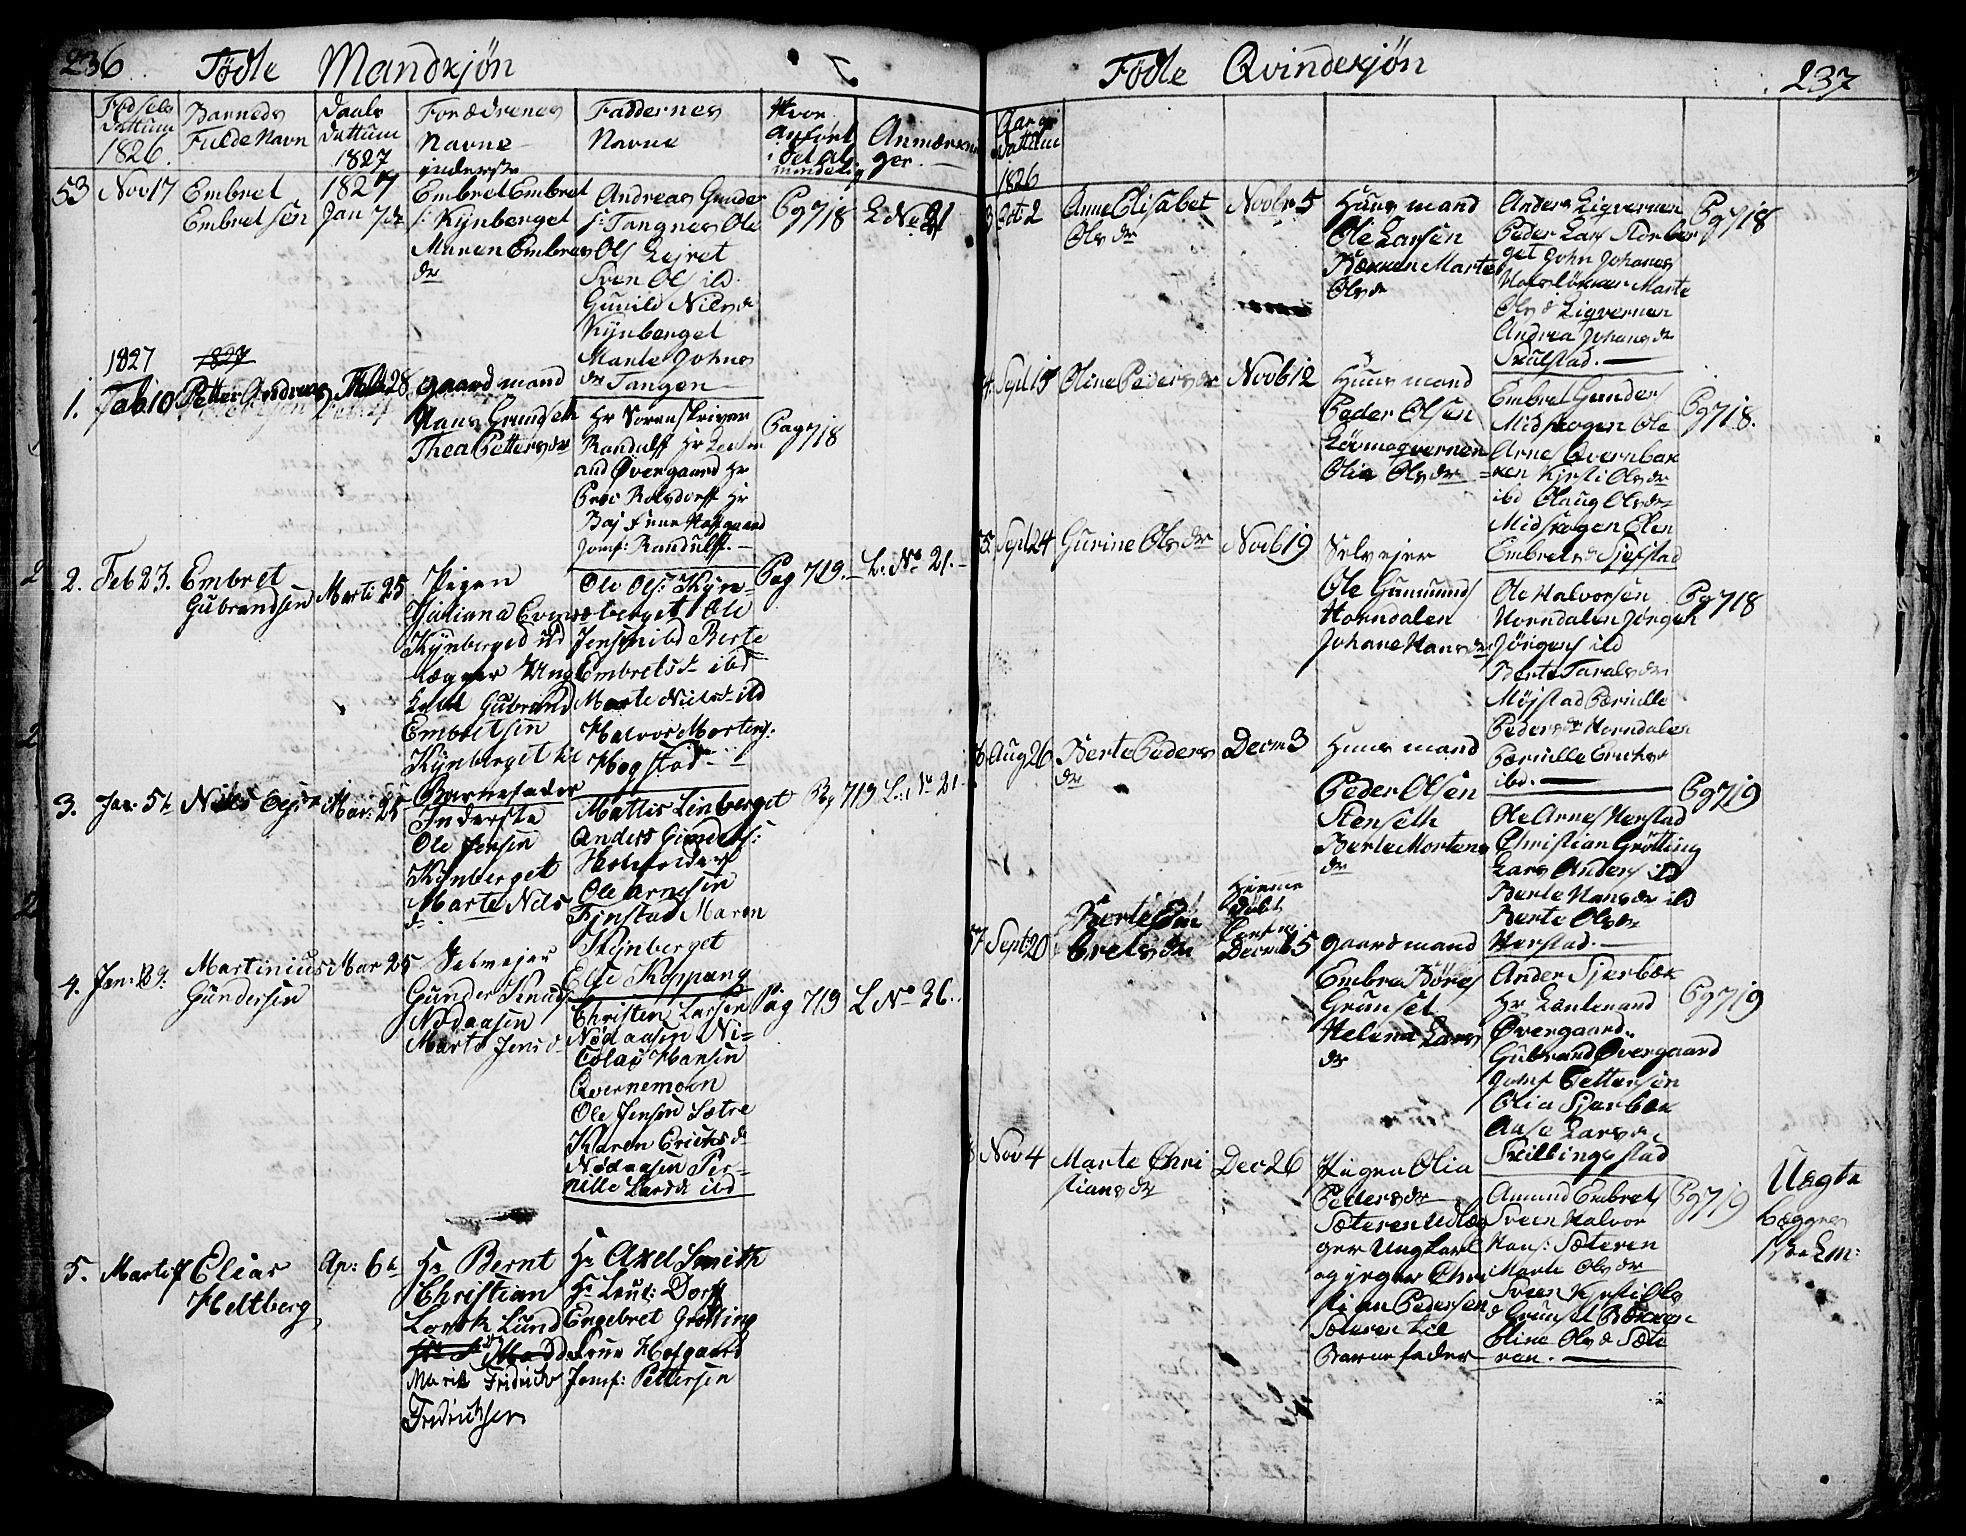 236 Fødte Mandkjøn
Fødsels Dattum 1826.
Barneds Fulde Navn
Daabs Dattum 1827
Forældrenes Navne
Faddernes Navne
Hvor anført i det al mindelig
Anmærknin ger.
53 Nov 17
Embret
Embretsen
1827
Jan 7de
inderste
Embret Embret
s: Kynberget
Maren Embres
dr
Andreas Gunder
s: Tangnes Ole
Ols Lejret
Sven Ols ibd
Gunild Nilsd
Kynberget
Marte Johns
dr Tangen
Pg 718
L No 21
1827
1827
1. Feb 10
Petter Andreas
Feb 28
gaardmand
Hans Grundseth
Thea Pettersdr
Hr Sorenskriver
Randulff Hr Leuten
and Øvergaard Hr
Proc Rolsdorff Hr
Baj Frue Hofgaard
Jomf: Randulff.
Pag 718
2. Feb 23.
Embret
Gubrandsen
Marti 25
Pigen
Juliana Evens
Kynberged ud
lægger Ung
karl Gubrand
Embretsen
Kynberget til
Barnefader
Ole Ols: Kyn-
berget Ole
Jensen ibd Berte
Embretsd ibd
Marte Nielsd ibd
Halvor Mortens:
Hogstad
Pag 719.
L. No 21.
3. Jan: 5te
Nils Olsen
Mar: 25
Inderste
Ole Jensen
Kynberget
Marte Nils
d
Mattis Linberget
Anders Gunders:
Ole Arnesen
Fjnstad Maren
Kynberget
Else Koppang
Pg 719
L: No 21
4. Jan: 29:
Martinius
Gundersen
Mar 25
Selvejer
Gunder Knuds
Nödaasen
Marte Jensd
Christen Larsen
Nödaasen Ni-
colai Hansen
Qvernemoen
Ole Jensen Lætre
Karen Ericksd
Nødaasen Per-
nille Larsd ibd
Pag 719
L No 36.
5. Marti
Elias
Heltberg
Ap: 6te
Hr Bernt
Christian
Lund
Marie Fridricke
Fredrichsen
Hr Axel Smith
Hr Leut: Dorff
Engebret Grøtting
Frue Hofgaard
Jomf: Pettersen
Fødte Qvindekjøn 237
Aar og Dattum
1826
3 Octb 2
Anne Elisabet
Olsdr
Novbr 5
Huusmand
Ole Larsen
Bækken Marte
Olsdr
Anders Liqvernen
Peder Lars Storber
get John Johanes
Marte
Olsd Liqvernen
Andrea Johansdr
Skulstad.
Pg 718
4 Sept 15
Oline Pedersdr
Novb 12
Huusmand
Peder Olsen
Løvmoqvernen
Olia Olsdr
Embret Gunders
Midskogen Ole
Arne Qvernbak
ken Kjersti Olsdr
ibd Olaug Olsdr
Midskogen Elen
Embretsd Sjefstad
Pg 718.
5. Sept 24
Gurine Olsdr
Novb 19
Selvejer
Ole Gummunds
Horndalen
Johane Hansdr
Ole Halvorsen
Horndalen Jörgen
Jörgens ibd
Berte Taralsdr
Møjstad Pernille
Pedersdr Horndalen
Pernille Erichsd
ibd.
Pg 718
6 Aug 26
Berte Peders
dr
Decm 3
Huusmand
Peder Olsen
Stenseth
Berte Mortens
dr
Ole Arnes Herstad
Christian Grötting
Lars Anders ibd
Berte Hansdr ibd
Berte Olsdr
Herstad.
Pg 719
7 Sept 20
Berte Em
bretsdr
Hiemme
Döbt
Decm 15
gaardmand
Embret Böres
Grunset
Helena Lars
dr
Ander Stjerbæk
Hr Leutenand
Øvergaard.
Gubrand Øvergaard
Jomf Pettersen
Olia Stjerbæk
Aase Larsdr
Skillingsstad
Pg 719
8 Nov 4
Marte Chri
stiansdr
Dec 26
Pigen Olia
Pedersdr
Sæteren Udlæg
ger Ungkarl
og jæger Chri
stian Pedersen
Sæteren til
Barnefader
Amund Embrets
Sveen Halvor
Hans: Sæteren
Marte Olsdr
Sveen Kjersti Ols
d Grunset Bækken
Oline Olsd Sæte
ren.
Pg 719
Uægte
begges
1ste Lm: